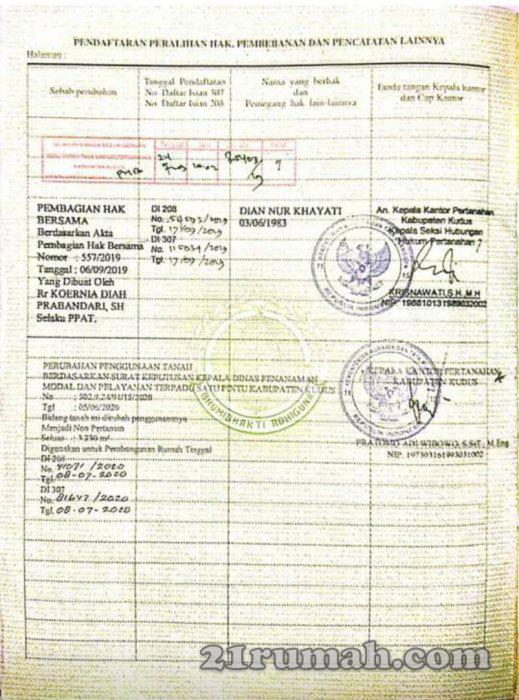 PENDAFTARAN PERALIHAN HAK, PEMBEBANAN DAN PENCATATAN LAINNYA
Halaman :
Sebab perubahan
Tanggal Pendaftaran
No. Daftar Isian 307
No. Daftar Isian 208
Nama yang berhak
dan
Pemegang hak lain-lainnya
Tanda tangan Kepala kantor
dan Cap Kantor
PEMBAGIAN HAK
BERSAMA
Berdasarkan Akta
Pembagian Hak Bersama
Nomor : 557/2019
Tanggal : 06/09/2019
Yang Dibuat Oleh
Rr KOERNIA DIAH
PRABANDARI, SH
Selaku PPAT.
DI 208
No.
Tgl. 17/09/2019
DI 307
No.
Tgl. 17/09/2019
DIAN NUR KHAYATI
03/06/1983
An. Kepala Kantor Pertanahan
Kabupaten Kudus
Kepala Seksi Hubungan
Hukum Pertanahan
KRISNAWATI,S.H,M.H
NIP. 198810131989032002
REPUBLIK INDONESIA
BHUMIBHAKTI ADHIGUNA
PERUBAHAN PENGGUNAAN TANAH
BERDASARKAN SURAT KEPUTUSAN KEPALA DINAS PENANAMAN
MODAL DAN PELAYANAN TERPADU SATU PINTU KABUPATEN KUDUS
No : 502.9.24/91/15/2020
Tgl : 05/06/2020
Bidang tanah ini dirubah penggunaannya
Menjadi Non Pertanian
Seluas : 3.230 m²
Digunakan untuk Pembangunan Rumah Tinggal
DI 208
No. 41071 /2020
Tgl. 08-07-2020
DI 307
No. 81647 /2020
Tgl. 08-07-2020
KEPALA KANTOR PERTANAHAN
KABUPATEN KUDUS
REPUBLIK INDONESIA
PRATOMO ADI WIBOWO, S.SiT., M.Eng
NIP. 197503161993031002
21rumah.com